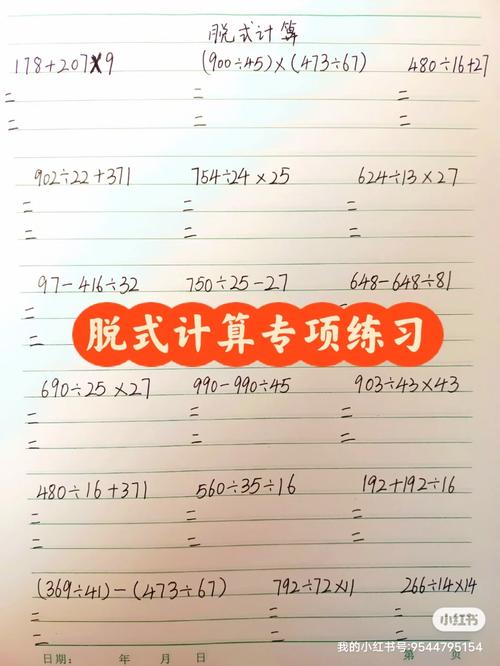 脱式计算
178+207×9 (900÷45)×(473÷67) 480÷16+27
= 
= =
902÷22+371 754÷24×25 624÷13×27
= = =
= = =
97-416÷32 750÷25-27 648-648÷81
=
脱式计算专项练习
=
690÷25×27 990-990÷45 903÷43×43
= = =
= = =
480÷16+371 560÷35÷16 192+192÷16
= = =
= = =
(369÷41)-(473÷67) 792÷72×11 266÷14×14
= = =
= = =
小红书
我的小红书号:9544795154
日期: 年 月 日 第 页